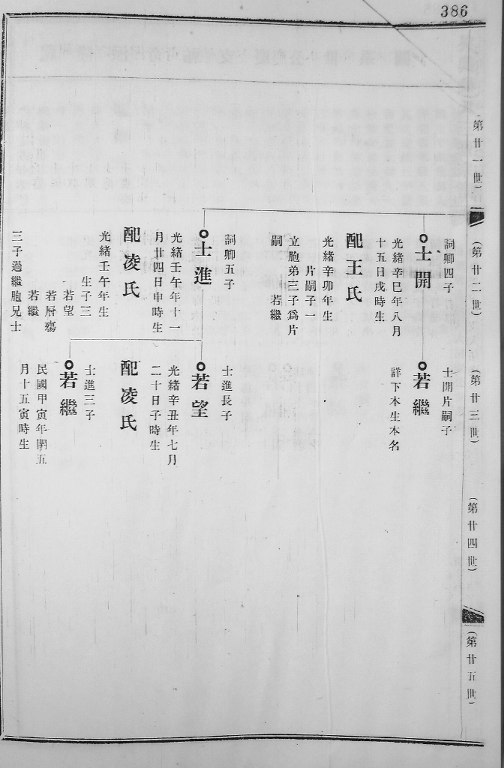 386
第廿一世
(第廿二世)
(第廿三世)
(第廿四世)
(第廿五世)
詞卿四子
士開
光緒辛巳年八月
十五日戌時生
配王氏
光緒辛卯年生
片嗣子一
立胞弟三子爲片
嗣 若繼
詞卿五子
士進
光緒壬午年十一
月廿四日申時生
配凌氏
光緒壬午年生
生子三
若望
若厝殤
若繼
三子過繼胞兄士
士開片嗣子
若繼
詳下本生本名
士進長子
若望
光緒辛丑年七月
二十日子時生
配凌氏
士進三子
若繼
民國甲寅年閏五
月十五寅時生